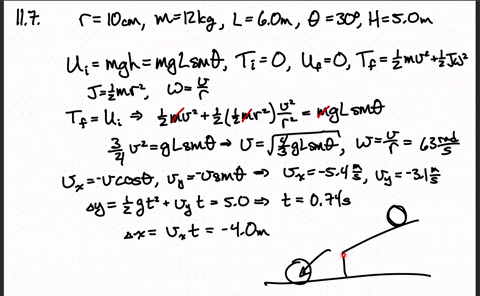 11.7. r = 10cm, m = 12kg, L = 6.0m, θ = 30°, H = 5.0m
Ui = mgh = mgLsinθ, Ti = 0, Uf = 0, Tf = ½mv² + ½Jω²
J = ½mr², ω = v/r
Tf = Ui ⇒ ½mv² + ½(½mr²)v²/r² = mgLsinθ
3/4 v² = gLsinθ → v = √(4/3 gLsinθ), ω = v/r = 63 rad/s
vx = -vcosθ, vy = -vsinθ ⇒ vx = -5.4 m/s, vy = -3.1 m/s
Δy = ½gt² + vyt = 5.0 ⇒ t = 0.74s
Δx = vxt = -4.0m